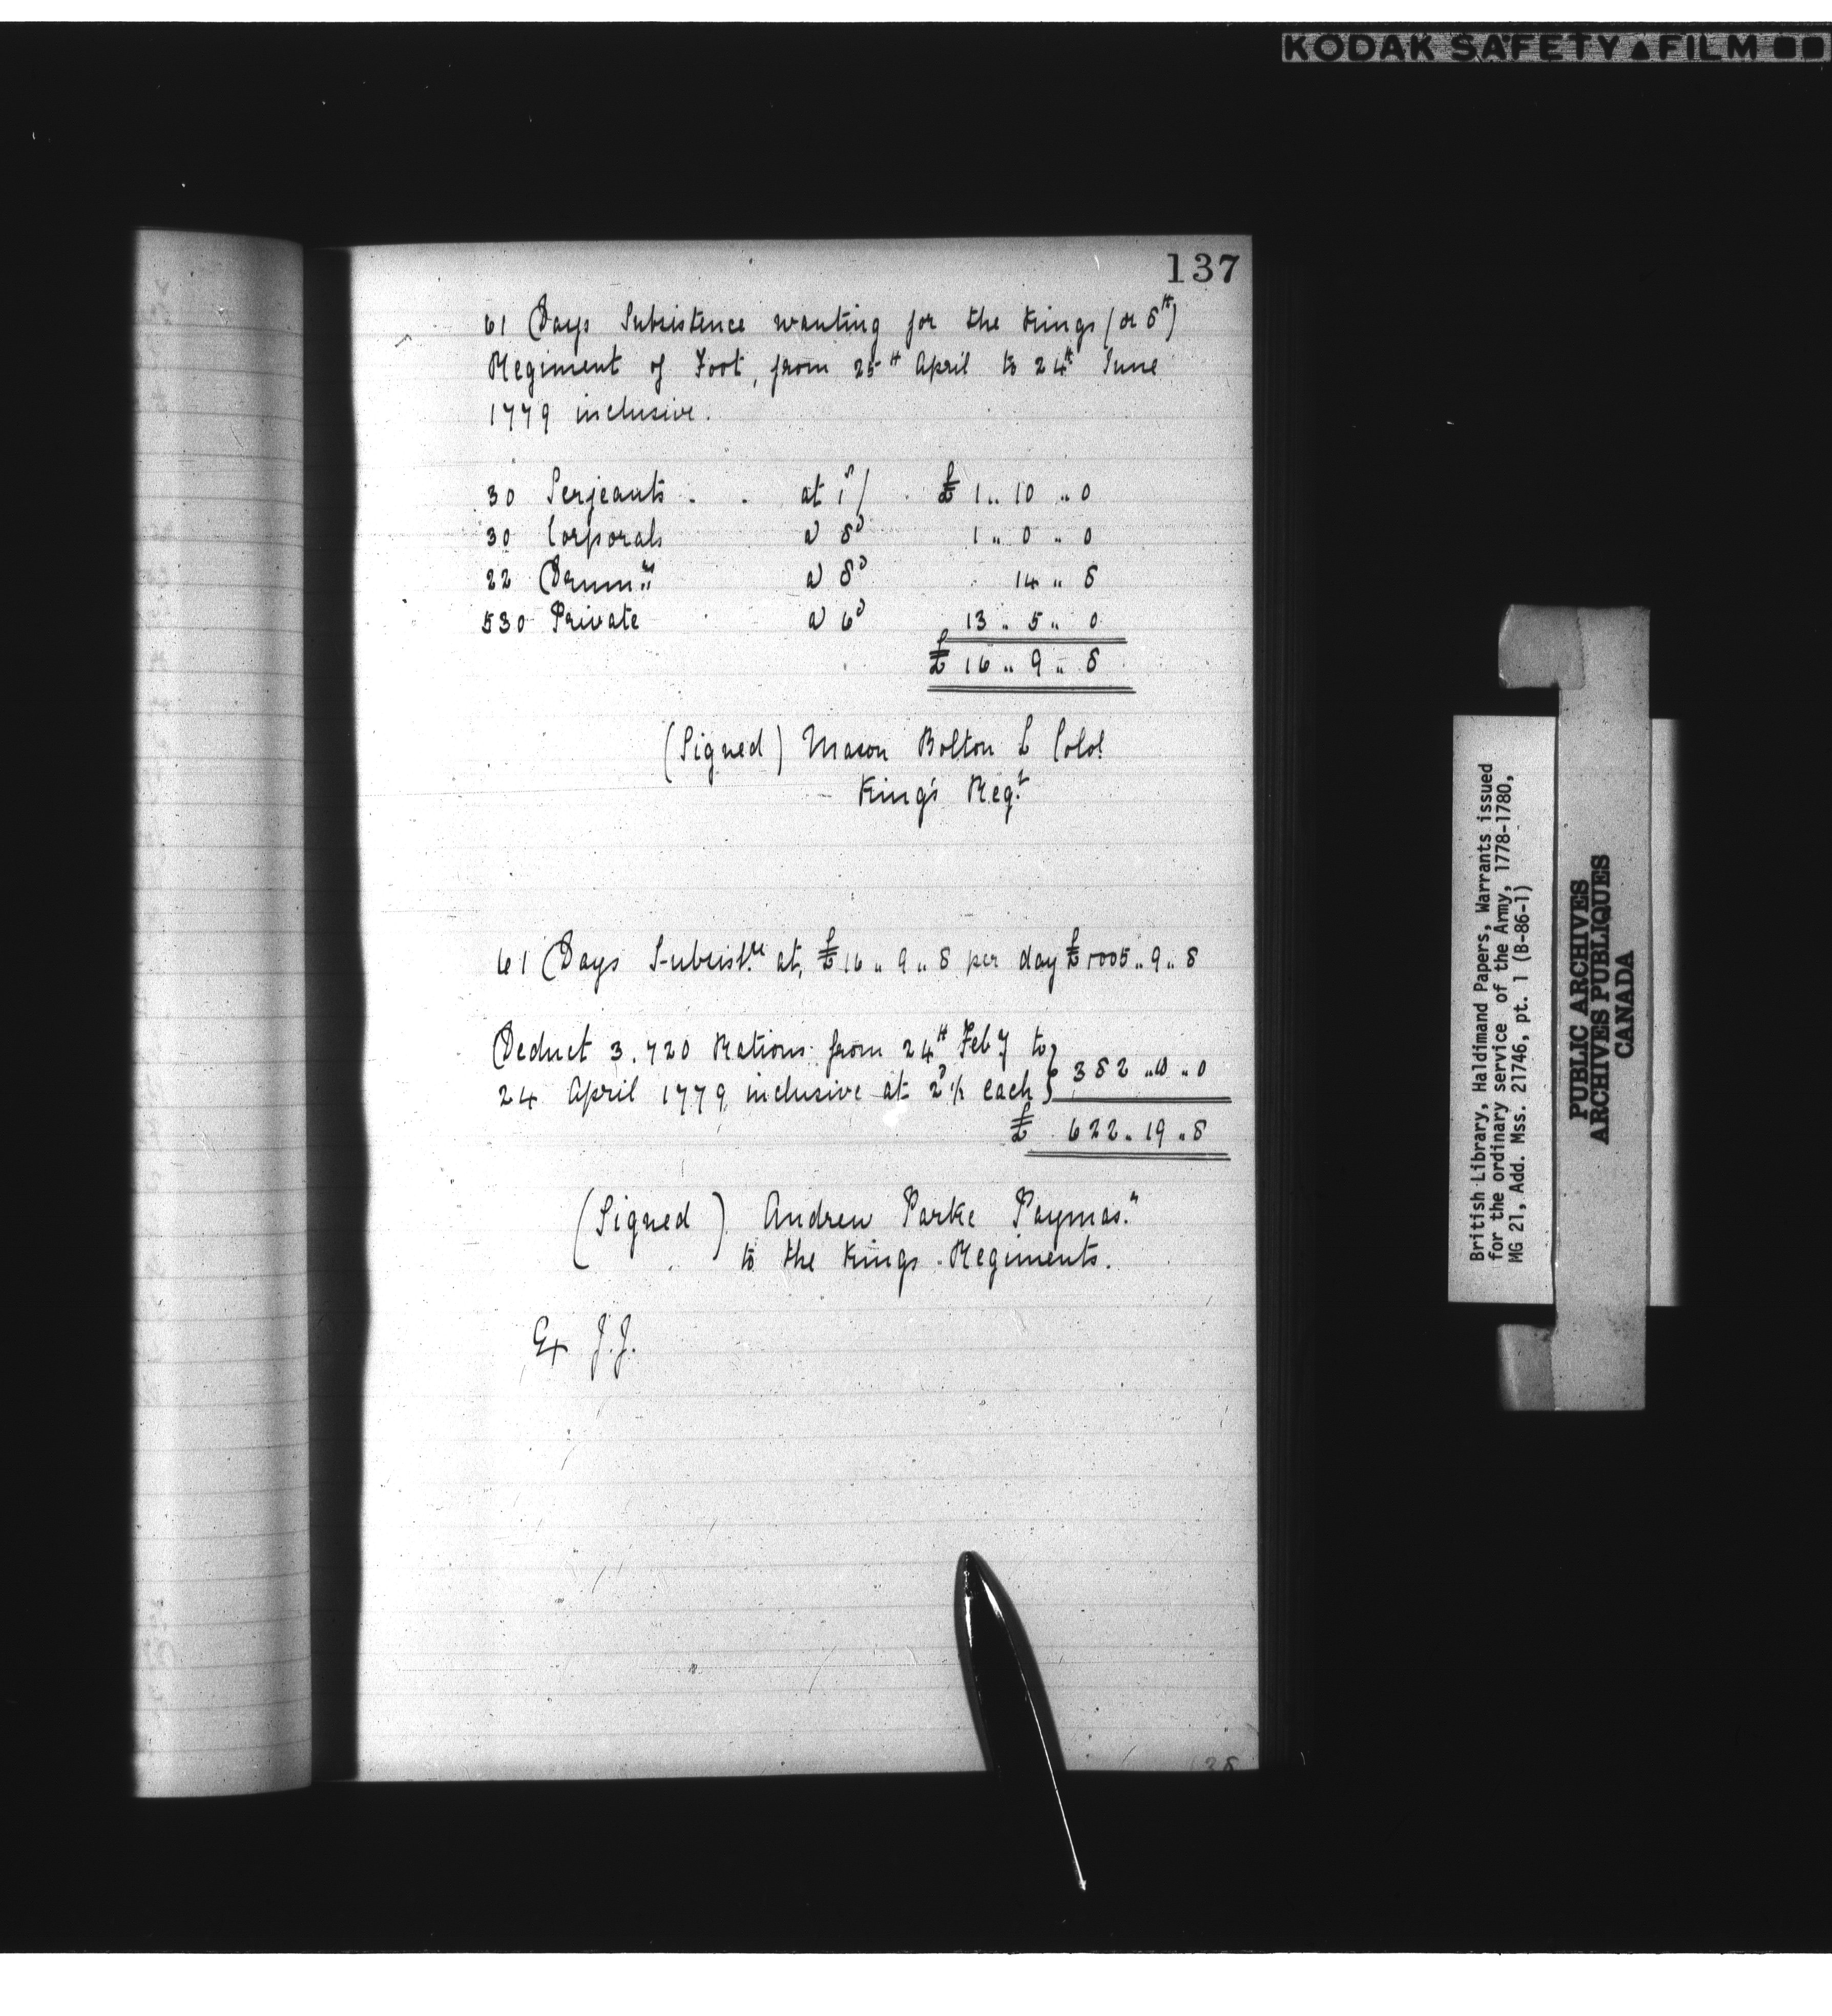 KODAK SAFETY ▲ FILM
137
61 Days Subsistence wanting for the Kings (or 8th)
Regiment of Foot, from 25th April to 24th June
1779 inclusive.
30 Serjeants . . at 1s/ . £ 1 „ 10 „ 0
30 Corporals a 8d 1 „ 0 „ 0
22 Drumrs a 8d 14 „ 8
530 Private a 6d 13 „ 5 „ 0
£ 16 „ 9 „ 8
(Signed) Mason Bolton Lt Colol
King's Regt
61 Days Subsistce at, £16 „ 9 „ 8 per day £1005 „ 9 „ 8
Deduct 3.720 Rations from 24th Feby to
24 April 1779 inclusive at 2d ½ each } 382 „ 10 „ 0
£ 622 „ 19 „ 8
(Signed) Andrew Parke Paymasr
to the Kings Regiments.
Ex J.J.
British Library, Haldimand Papers, Warrants issued
for the ordinary service of the Army, 1778-1780,
MG 21, Add. Mss. 21746, pt. 1 (B-86-1)
PUBLIC ARCHIVES
ARCHIVES PUBLIQUES
CANADA